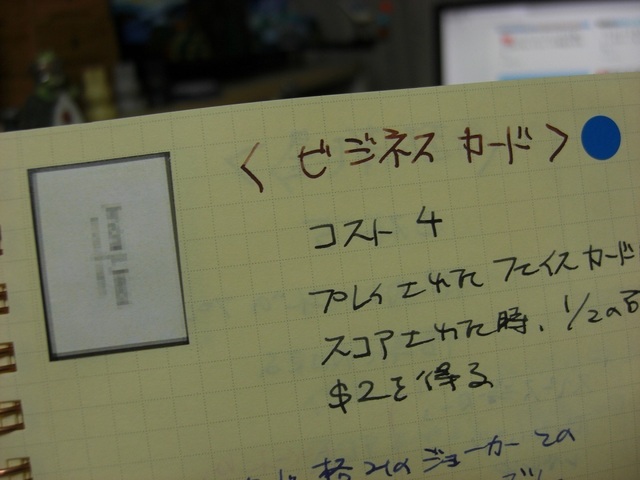 〈ビジネスカード〉
コスト4
プレイされたフェイスカード
スコアされた時、1/2の
$2を得る
ジョーカーとの